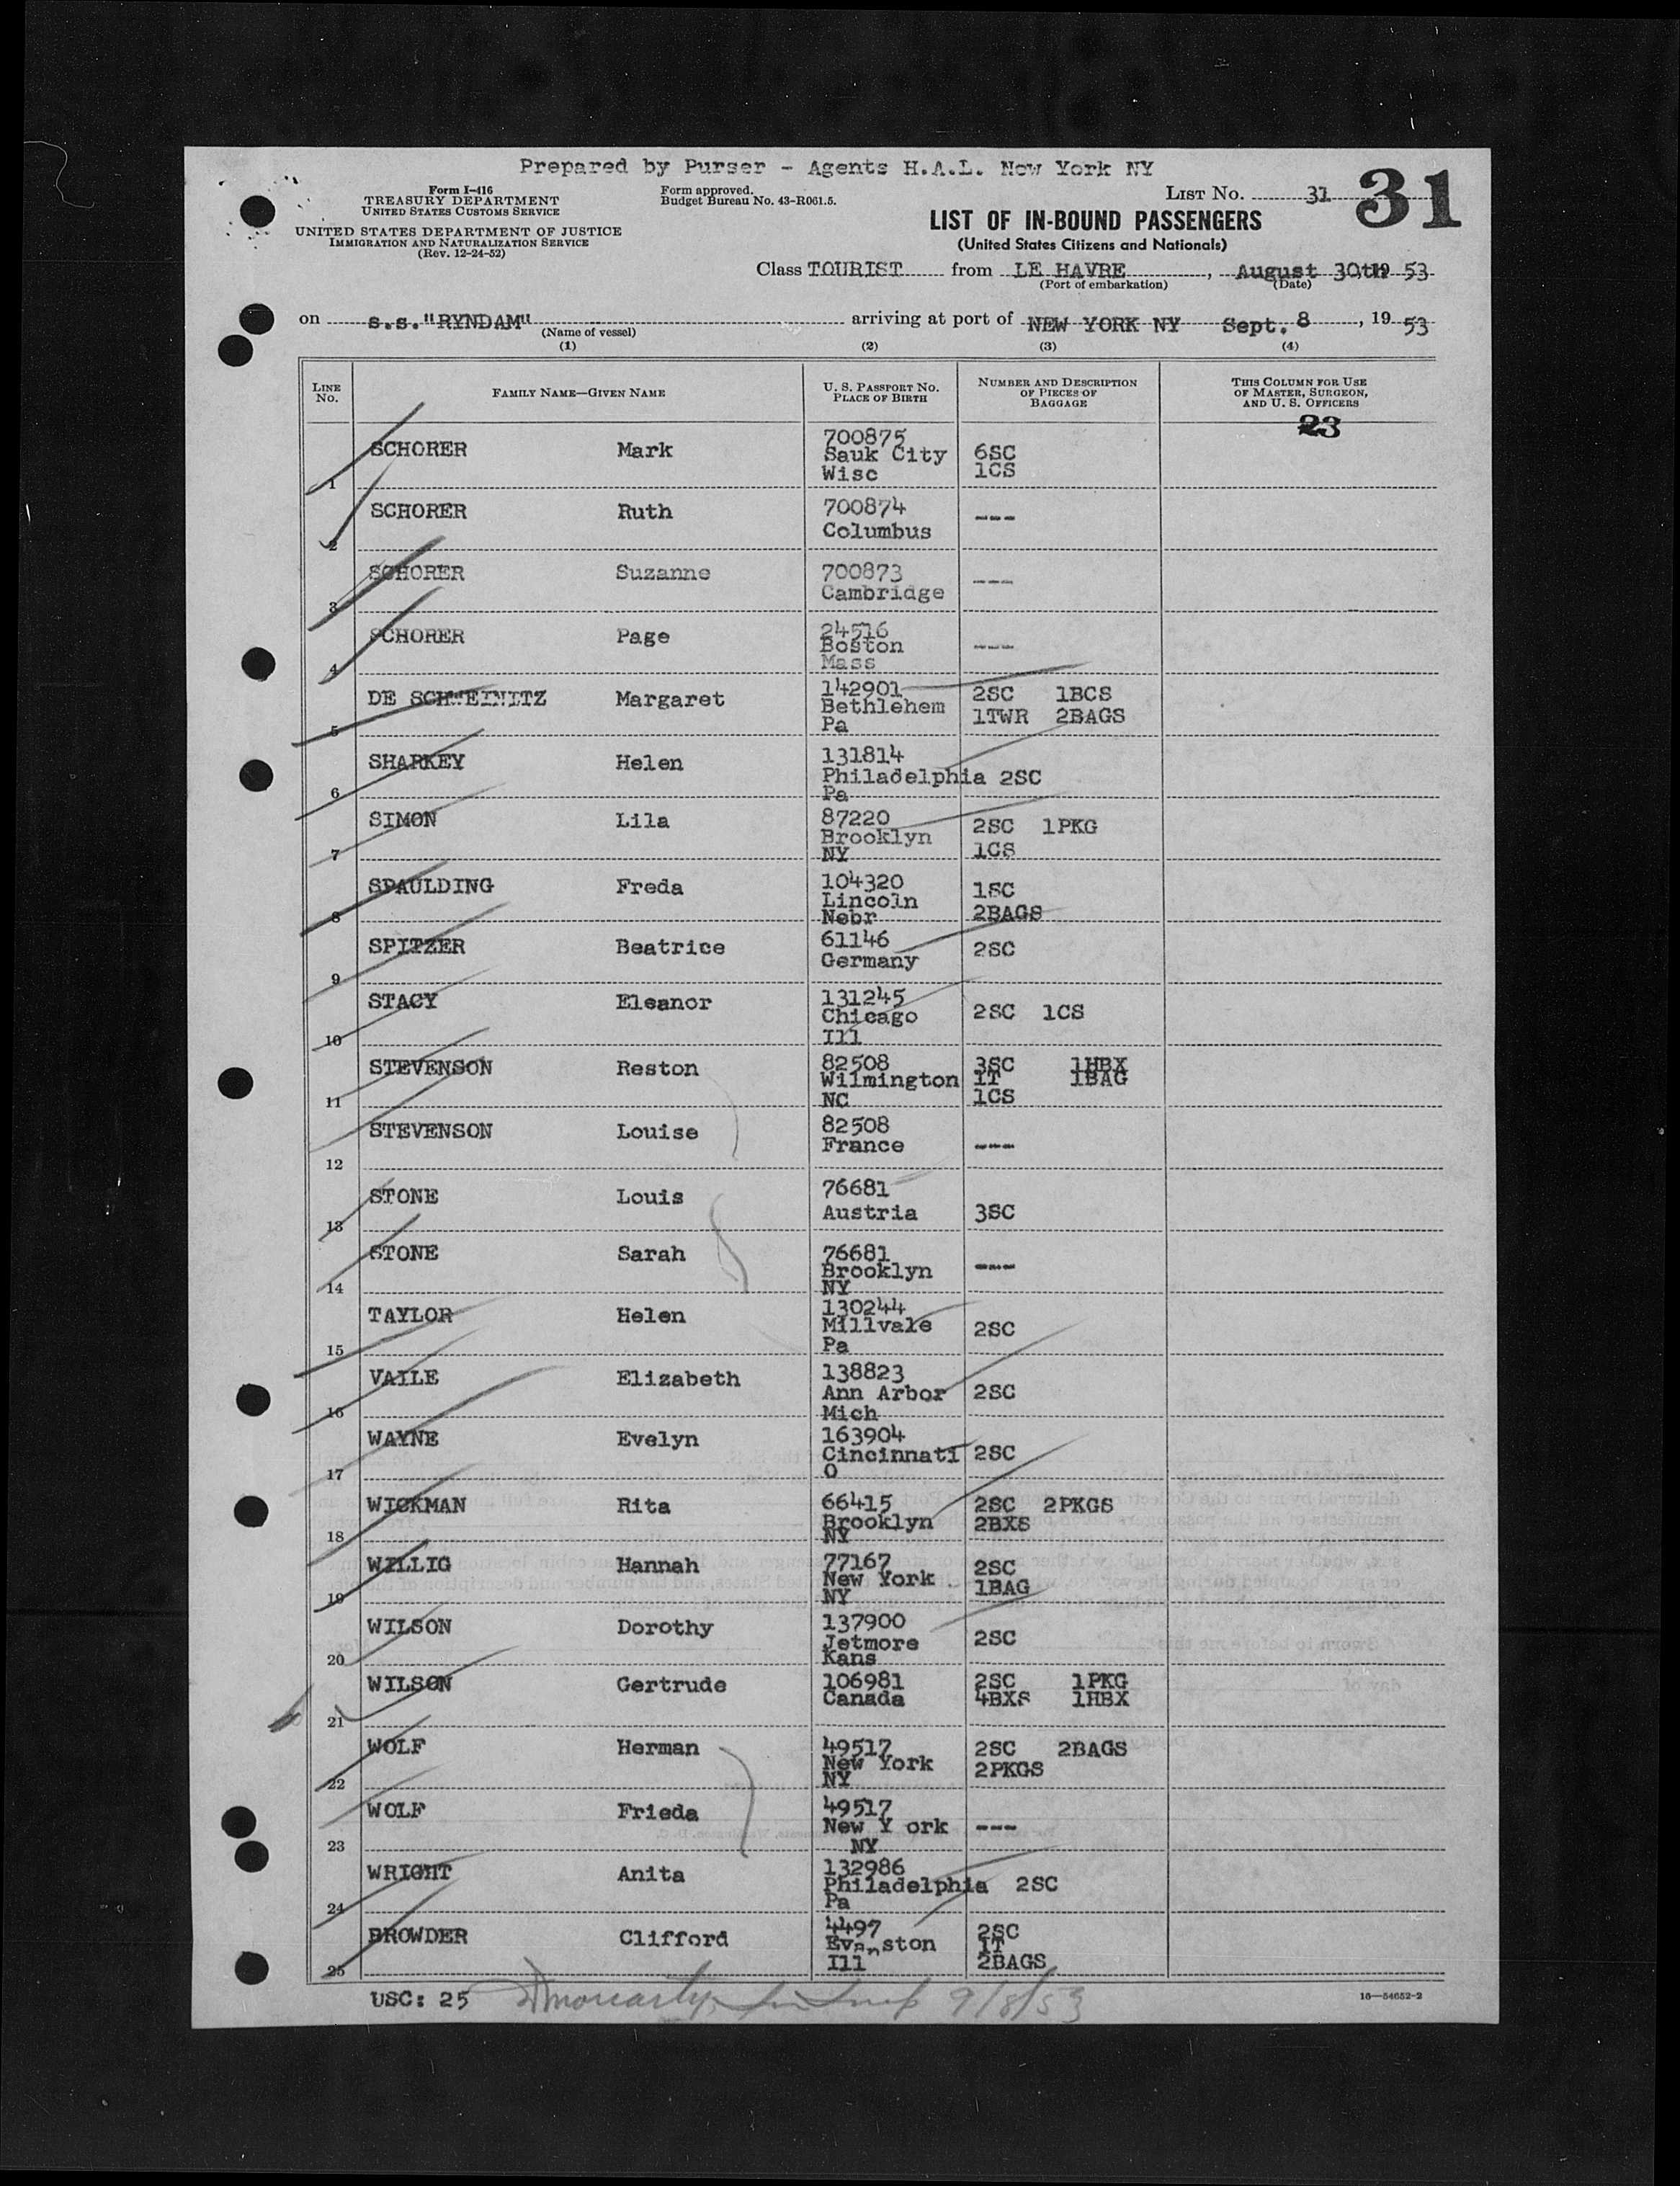 Prepared by Purser - Agents H.A.L. New York NY
Form I-416
TREASURY DEPARTMENT
UNITED STATES CUSTOMS SERVICE
UNITED STATES DEPARTMENT OF JUSTICE
IMMIGRATION AND NATURALIZATION SERVICE
(Rev. 12-24-52)
Form approved.
Budget Bureau No. 43-R061.5.
LIST NO. 31
31
LIST OF IN-BOUND PASSENGERS
(United States Citizens and Nationals)
Class TOURIST from LE HAVRE, August 30th 19 53
(Port of embarkation) (Date)
on s.s."RYNDAM" arriving at port of NEW YORK NY Sept. 8, 19 53
(Name of vessel)
(1) (2) (3) (4)
LINE NO.
FAMILY NAME—GIVEN NAME
U. S. PASSPORT NO.
PLACE OF BIRTH
NUMBER AND DESCRIPTION
OF PIECES OF
BAGGAGE
THIS COLUMN FOR USE
OF MASTER, SURGEON,
AND U. S. OFFICERS
23
1 SCHORER Mark 700875 Sauk City Wisc 6SC 1CS
2 SCHORER Ruth 700874 Columbus ---
3 SCHORER Suzanne 700873 Cambridge ---
4 SCHORER Page 24516 Boston Mass ---
5 DE SCHWEINITZ Margaret 142901 Bethlehem Pa 2SC 1BCS 1TWR 2BAGS
6 SHARKEY Helen 131814 Philadelphia Pa 2SC
7 SIMON Lila 87220 Brooklyn NY 2SC 1PKG 1CS
8 SPAULDING Freda 104320 Lincoln Nebr 1SC 2BAGS
9 SPITZER Beatrice 61146 Germany 2SC
10 STACY Eleanor 131245 Chicago Ill 2SC 1CS
11 STEVENSON Reston 82508 Wilmington NC 3SC 1HBX 1T 1BAG 1CS
12 STEVENSON Louise 82508 France ---
13 STONE Louis 76681 Austria 3SC
14 STONE Sarah 76681 Brooklyn NY ---
15 TAYLOR Helen 130244 Millvale Pa 2SC
16 VAILE Elizabeth 138823 Ann Arbor Mich 2SC
17 WAYNE Evelyn 163904 Cincinnati O 2SC
18 WICKMAN Rita 66415 Brooklyn NY 2SC 2PKGS 2BXS
19 WILLIG Hannah 77167 New York NY 2SC 1BAG
20 WILSON Dorothy 137900 Jetmore Kans 2SC
21 WILSON Gertrude 106981 Canada 2SC 1PKG 4BXS 1HBX
22 WOLF Herman 49517 New York NY 2SC 2BAGS 2PKGS
23 WOLF Frieda 49517 New Y ork NY ---
24 WRIGHT Anita 132986 Philadelphia Pa 2SC
25 BROWDER Clifford 4497 Evanston Ill 2SC 1T 2BAGS
USC: 25 9/8/53
16—54652-2